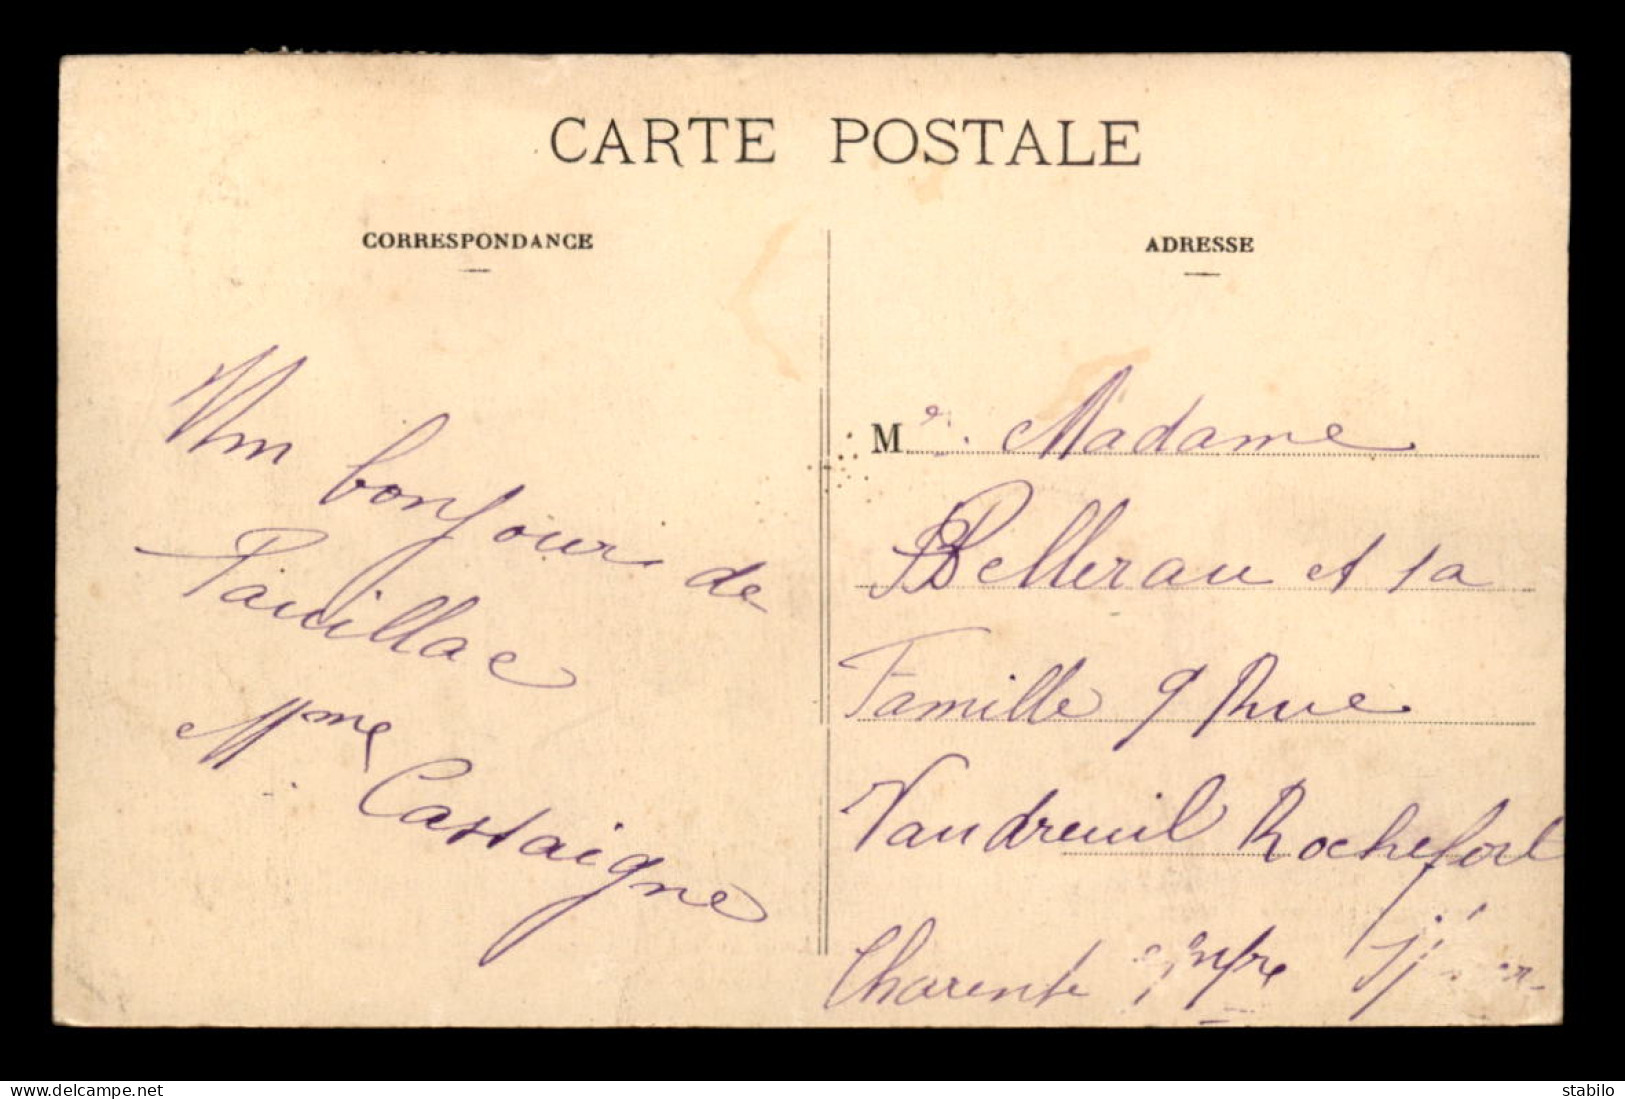 CARTE POSTALE
CORRESPONDANCE
ADRESSE
Un bonjour de
Pauillac
Mme Castaigne
Me. Madame
Pellerau et sa
Famille 9 Rue
Vaudreuil Rochefort
Charente Infre
www.delcampe.net
stabilo